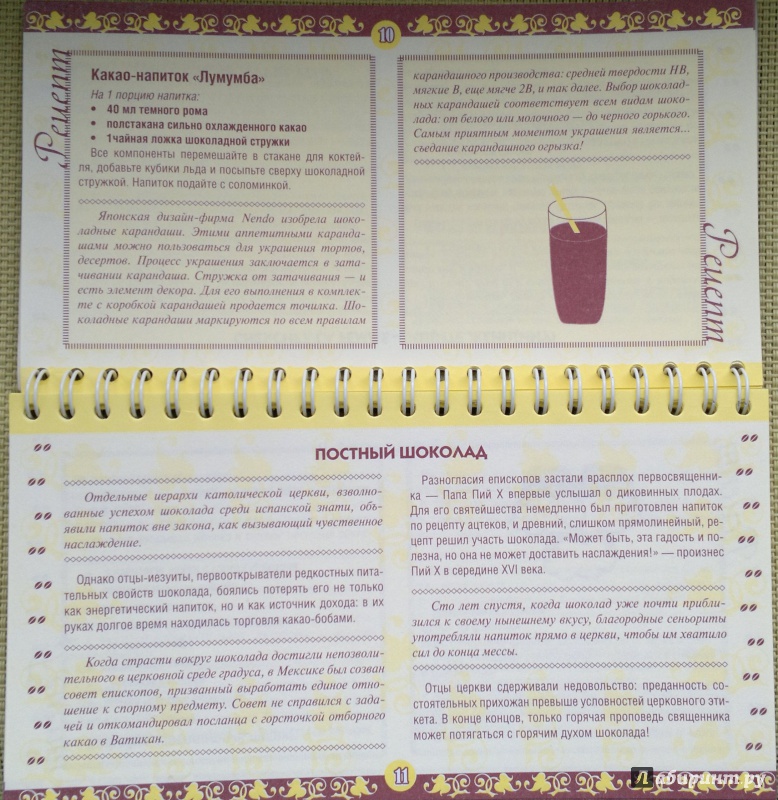 10
Рецепт
Какао-напиток «Лумумба»
На 1 порцию напитка:
• 40 мл темного рома
• полстакана сильно охлажденного какао
• 1чайная ложка шоколадной стружки
Все компоненты перемешайте в стакане для коктей-
ля, добавьте кубики льда и посыпьте сверху шоколадной
стружкой. Напиток подайте с соломинкой.
Японская дизайн-фирма Nendo изобрела шоко-
ладные карандаши. Этими аппетитными каранда-
шами можно пользоваться для украшения тортов,
десертов. Процесс украшения заключается в зата-
чивании карандаша. Стружка от затачивания — и
есть элемент декора. Для его выполнения в комплек-
те с коробкой карандашей продается точилка. Шо-
коладные карандаши маркируются по всем правилам
карандашного производства: средней твердости НВ,
мягкие В, еще мягче 2В, и так далее. Выбор шоколад-
ных карандашей соответствует всем видам шоко-
лада: от белого или молочного — до черного горького.
Самым приятным моментом украшения является...
съедание карандашного огрызка!
Рецепт
ПОСТНЫЙ ШОКОЛАД
Отдельные иерархи католической церкви, взволно-
ванные успехом шоколада среди испанской знати, объ-
явили напиток вне закона, как вызывающий чувственное
наслаждение.
Однако отцы-иезуиты, первооткрыватели редкостных пита-
тельных свойств шоколада, боялись потерять его не только
как энергетический напиток, но и как источник дохода: в их
руках долгое время находилась торговля какао-бобами.
Когда страсти вокруг шоколада достигли непозволи-
тельного в церковной среде градуса, в Мексике был созван
совет епископов, призванный выработать единое отно-
шение к спорному предмету. Совет не справился с зада-
чей и откомандировал посланца с горсточкой отборного
какао в Ватикан.
Разногласия епископов застали врасплох первосвященни-
ка — Папа Пий X впервые услышал о диковинных плодах.
Для его святейшества немедленно был приготовлен напиток
по рецепту ацтеков, и древний, слишком прямолинейный, ре-
цепт решил участь шоколада. «Может быть, эта гадость и по-
лезна, но она не может доставить наслаждения!» — произнес
Пий X в середине XVI века.
Сто лет спустя, когда шоколад уже почти прибли-
зился к своему нынешнему вкусу, благородные сеньориты
употребляли напиток прямо в церкви, чтобы им хватило
сил до конца мессы.
Отцы церкви сдерживали недовольство: преданность со-
стоятельных прихожан превыше условностей церковного эти-
кета. В конце концов, только горячая проповедь священника
может потягаться с горячим духом шоколада!
11
Лабиринт.ру